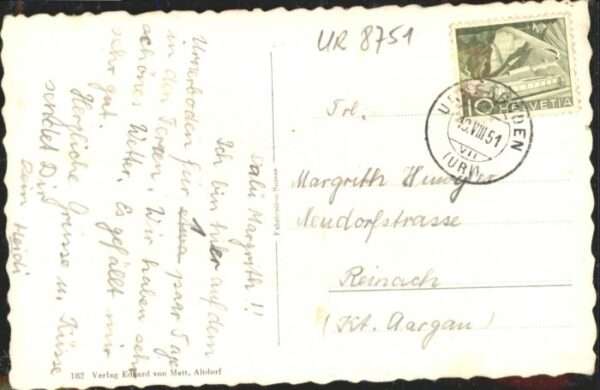 UR 8751
10 HELVETIA
URNERBODEN
13.VIII.51
VII
(URI)
Salü Margrith!!
Ich bin hier auf dem
Urnerboden für 1 paar Tage
in den Ferien. Wir haben sehr
schönes Wetter. Es gefällt mir
sehr gut.
Herzliche Grüsse u. Küsse
sendet Dir
Dein Heidi
Frl.
Margrith
Neudorfstrasse
Reinach
(Kt. Aargau)
182 Verlag Eduard von Matt, Altdorf